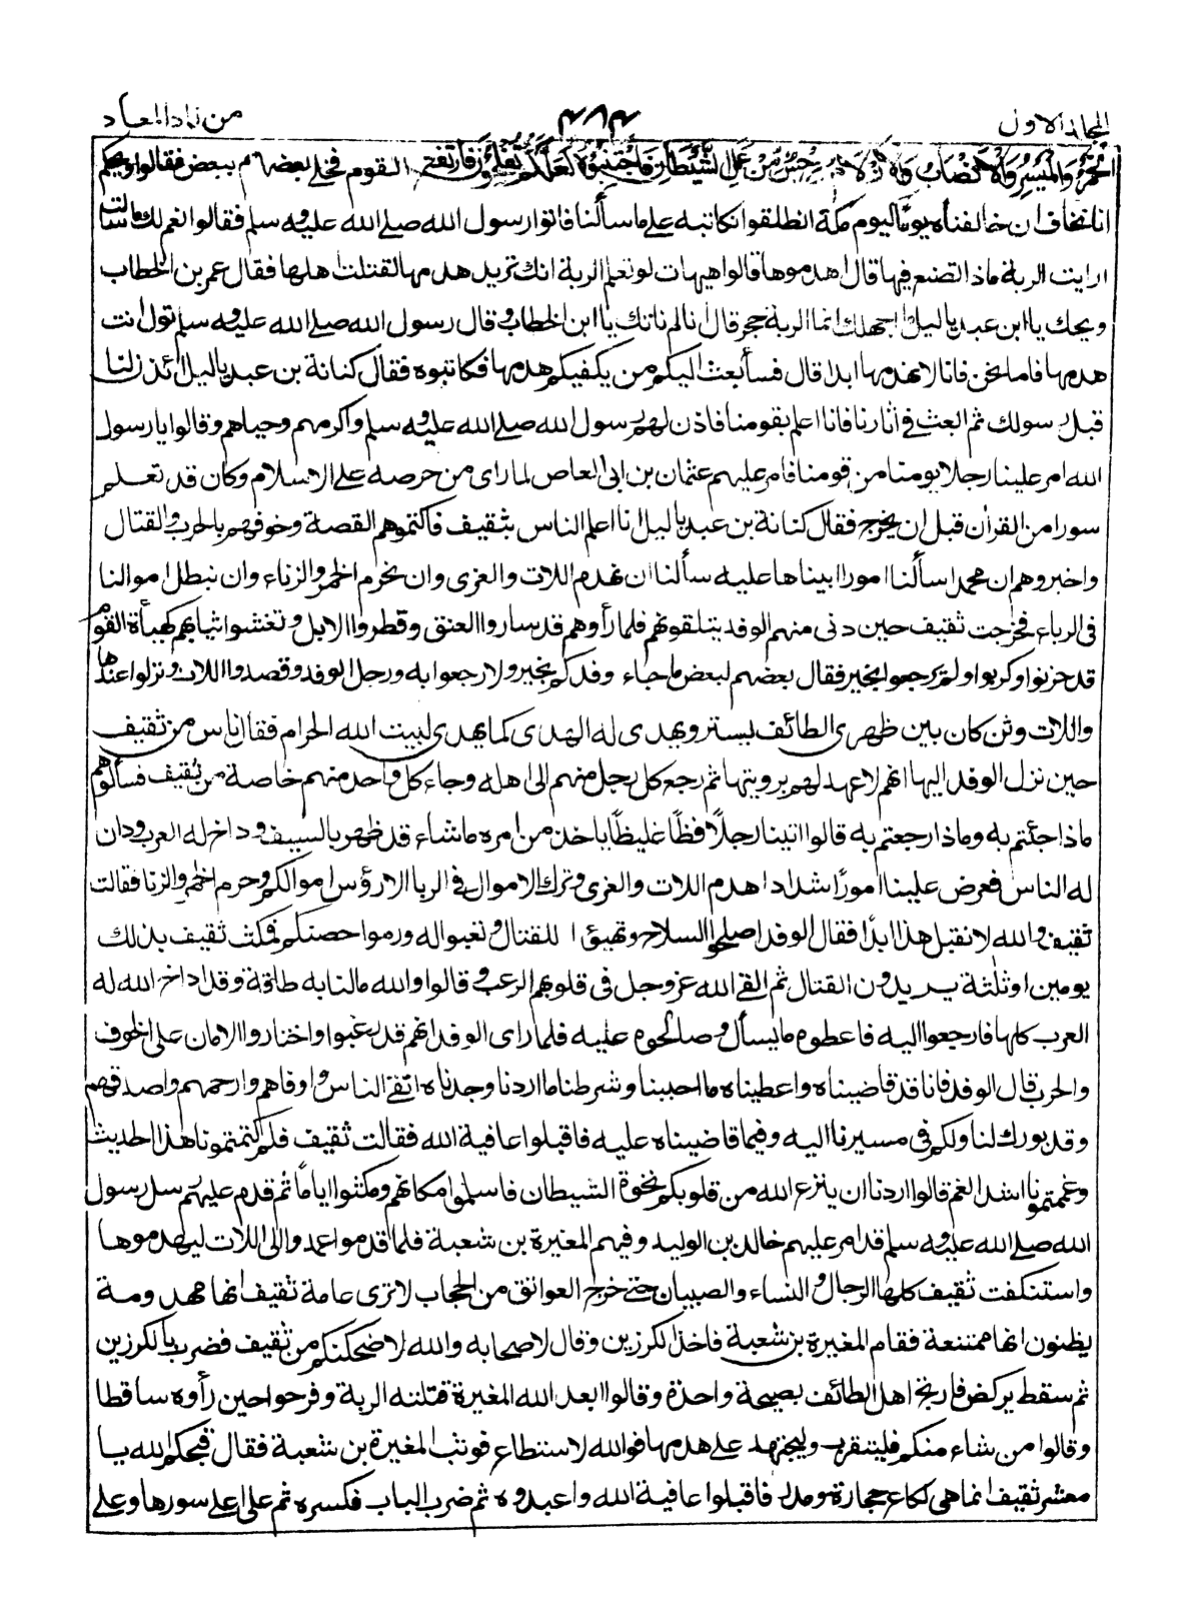 المجلد الاول
٤٨٣
من زاد المعاد
الْخَمْرُ وَالْمَيْسِرُ وَالْاَنْصَابُ وَالْاَزْلَامُ رِجْسٌ مِّنْ عَمَلِ الشَّيْطَانِ فَاجْتَنِبُوْهُ لَعَلَّكُمْ تُفْلِحُوْنَ فارتفع القوم فخلى بعضهم ببعض فقالوا ويحكم
انا نخاف ان خالفناه يوما كيوم مكة انطلقوا نكاتبه على ما سألنا فاتوا رسول الله صلى الله عليه وسلم فقالوا نعم لك ما سالت
ارايت الربة ماذا نصنع فيها قال اهدموها قالوا هيهات لو تعلم الربة انك تريد هدمها لقتلت اهلها فقال عمر بن الخطاب
ويحك يا ابن عبد ياليل ما اجهلك انما الربة حجر قال انا لم ناتك يا ابن الخطاب وقال رسول الله صلى الله عليه وسلم تول انت
هدمها فاما نحن فانا لا نهدمها ابدا قال فسأبعث اليكم من يكفيكم هدمها فكاتبوه فقال كنانة بن عبد ياليل ائذن لنا
قبل رسولك ثم ابعث فى اثارنا فانا اعلم بقومنا فاذن لهم رسول الله صلى الله عليه وسلم واكرمهم وحياهم وقالوا يا رسول
الله امر علينا رجلا يومنا من قومنا فامر عليهم عثمان بن ابى العاص لما راى من حرصه على الاسلام وكان قد تعلم
سورا من القرأن قبل ان يخرج فقال كنانة بن عبد ياليل انا اعلم الناس بثقيف فاكتموهم القصة وخوفهم بالحرب والقتال
واخبروهم ان محمدا سألنا امورا ابيناها عليه سألنا ان نهدم اللات والعزى وان نحرم الخمر والزناء وان نبطل اموالنا
فى الرباء فخرجت ثقيف حين دنى منهم الوفد يتلقونهم فلما رأوهم قد ساروا العنق وقطروا الابل وتغشوا ثيابهم كهيأة القوم
قد حزنوا وكربوا ولم يرجعوا بخير فقال بعضهم لبعض ما جاء وفدكم بخير ولا رجعوا به ورجل الوفد وقصدوا اللات ونزلوا عندها
واللات وثن كان بين ظهرى الطائف يستر ويهدى له الهدى كما يهدى لبيت الله الحرام فقال ناس من ثقيف
حين نزل الوفد اليها انهم لا عهد لهم برويتها ثم رجع كل رجل منهم الى اهله وجاء كل واحد منهم خاصة من ثقيف فسألوهم
ماذا جئتم به وماذا رجعتم به قالوا اتينا رجلًا فظًا غليظًا ياخذ من امره ما شاء قد ظهر بالسيف وداخ له العرب ودان
له الناس فعرض علينا امورًا شدادا هدم اللات والعزى وترك الاموال فى الربا الا رؤس اموالكم وحرم الخمر والزنا فقالت
ثقيف والله لا نقبل هذا ابدًا فقال الوفد اصلحوا السلاح وتهيؤا للقتال وتعبوا له ورموا حصنكم فمكثت ثقيف بذلك
يومين او ثلثة يريدون القتال ثم القى الله عز وجل فى قلوبهم الرعب وقالوا والله مالنا به طاقة وقد اداخ الله له
العرب كلها فارجعوا اليه فاعطوه ما يسأل وصالحوه عليه فلما راى الوفد انهم قد رغبوا واختاروا الامان على الخوف
والحرب قال الوفد فانا قد قاضيناه واعطيناه ما احببنا وشرطنا ما اردنا وجدناه اتقى الناس واوفاهم وارحمهم واصدقهم
وقد بورك لنا ولكم فى مسيرنا اليه وفيما قاضيناه عليه فاقبلوا عافية الله فقالت ثقيف فلم كتمتمونا هذا الحديث
وغممتمونا اشد الغم قالوا اردنا ان ينزع الله من قلوبكم نخوة الشيطان فاسلموا مكانهم ومكثوا اياماً ثم قدم عليهم رسل رسول
الله صلى الله عليه وسلم قد امر عليهم خالد بن الوليد وفيهم المغيرة بن شعبة فلما قدموا عمدوا الى اللات ليهدموها
واستنكفت ثقيف كلها الرجال والنساء والصبيان حتى خرج العواتق من الحجاب لا ترى عامة ثقيف انها مهدومة
يظنون انها ممتنعة فقام المغيرة بن شعبة فاخذ الكرزين وقال لاصحابه والله لاضحكنكم من ثقيف فضرب بالكرزين
ثم سقط يركض فارتج اهل الطائف بصيحة واحدة وقالوا ابعد الله المغيرة قتلته الربة وفرحوا حين رأوه ساقطا
وقالوا من شاء منكم فليتقرب وليجتهد على هدمها فوالله لا ستطاع فوثب المغيرة بن شعبة فقال قبحكم الله يا
معشر ثقيف انما هى لكاع حجارة ومدر فاقبلوا عافية الله واعبدوه ثم ضرب الباب فكسره ثم على اعلى سورها وعلى